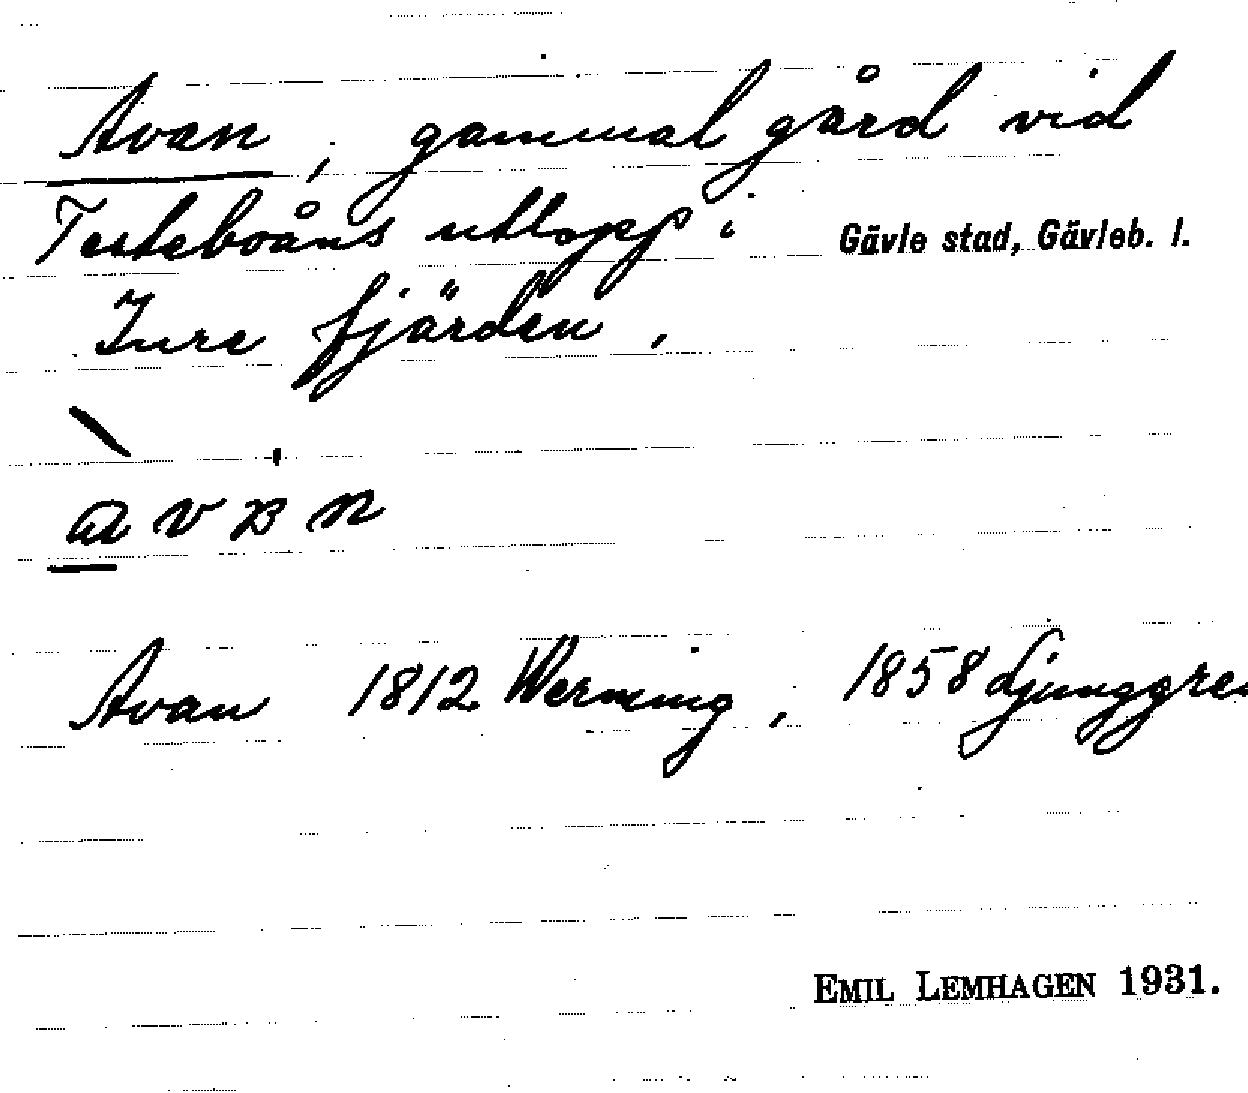 Avan, gammal gård vid
Testeboåns utlopp i
Gävle stad, Gävleb. l.
Inre fjärden.
Avan 1812 Werming, 1858 Ljunggren
EMIL LEMHAGEN 1931.